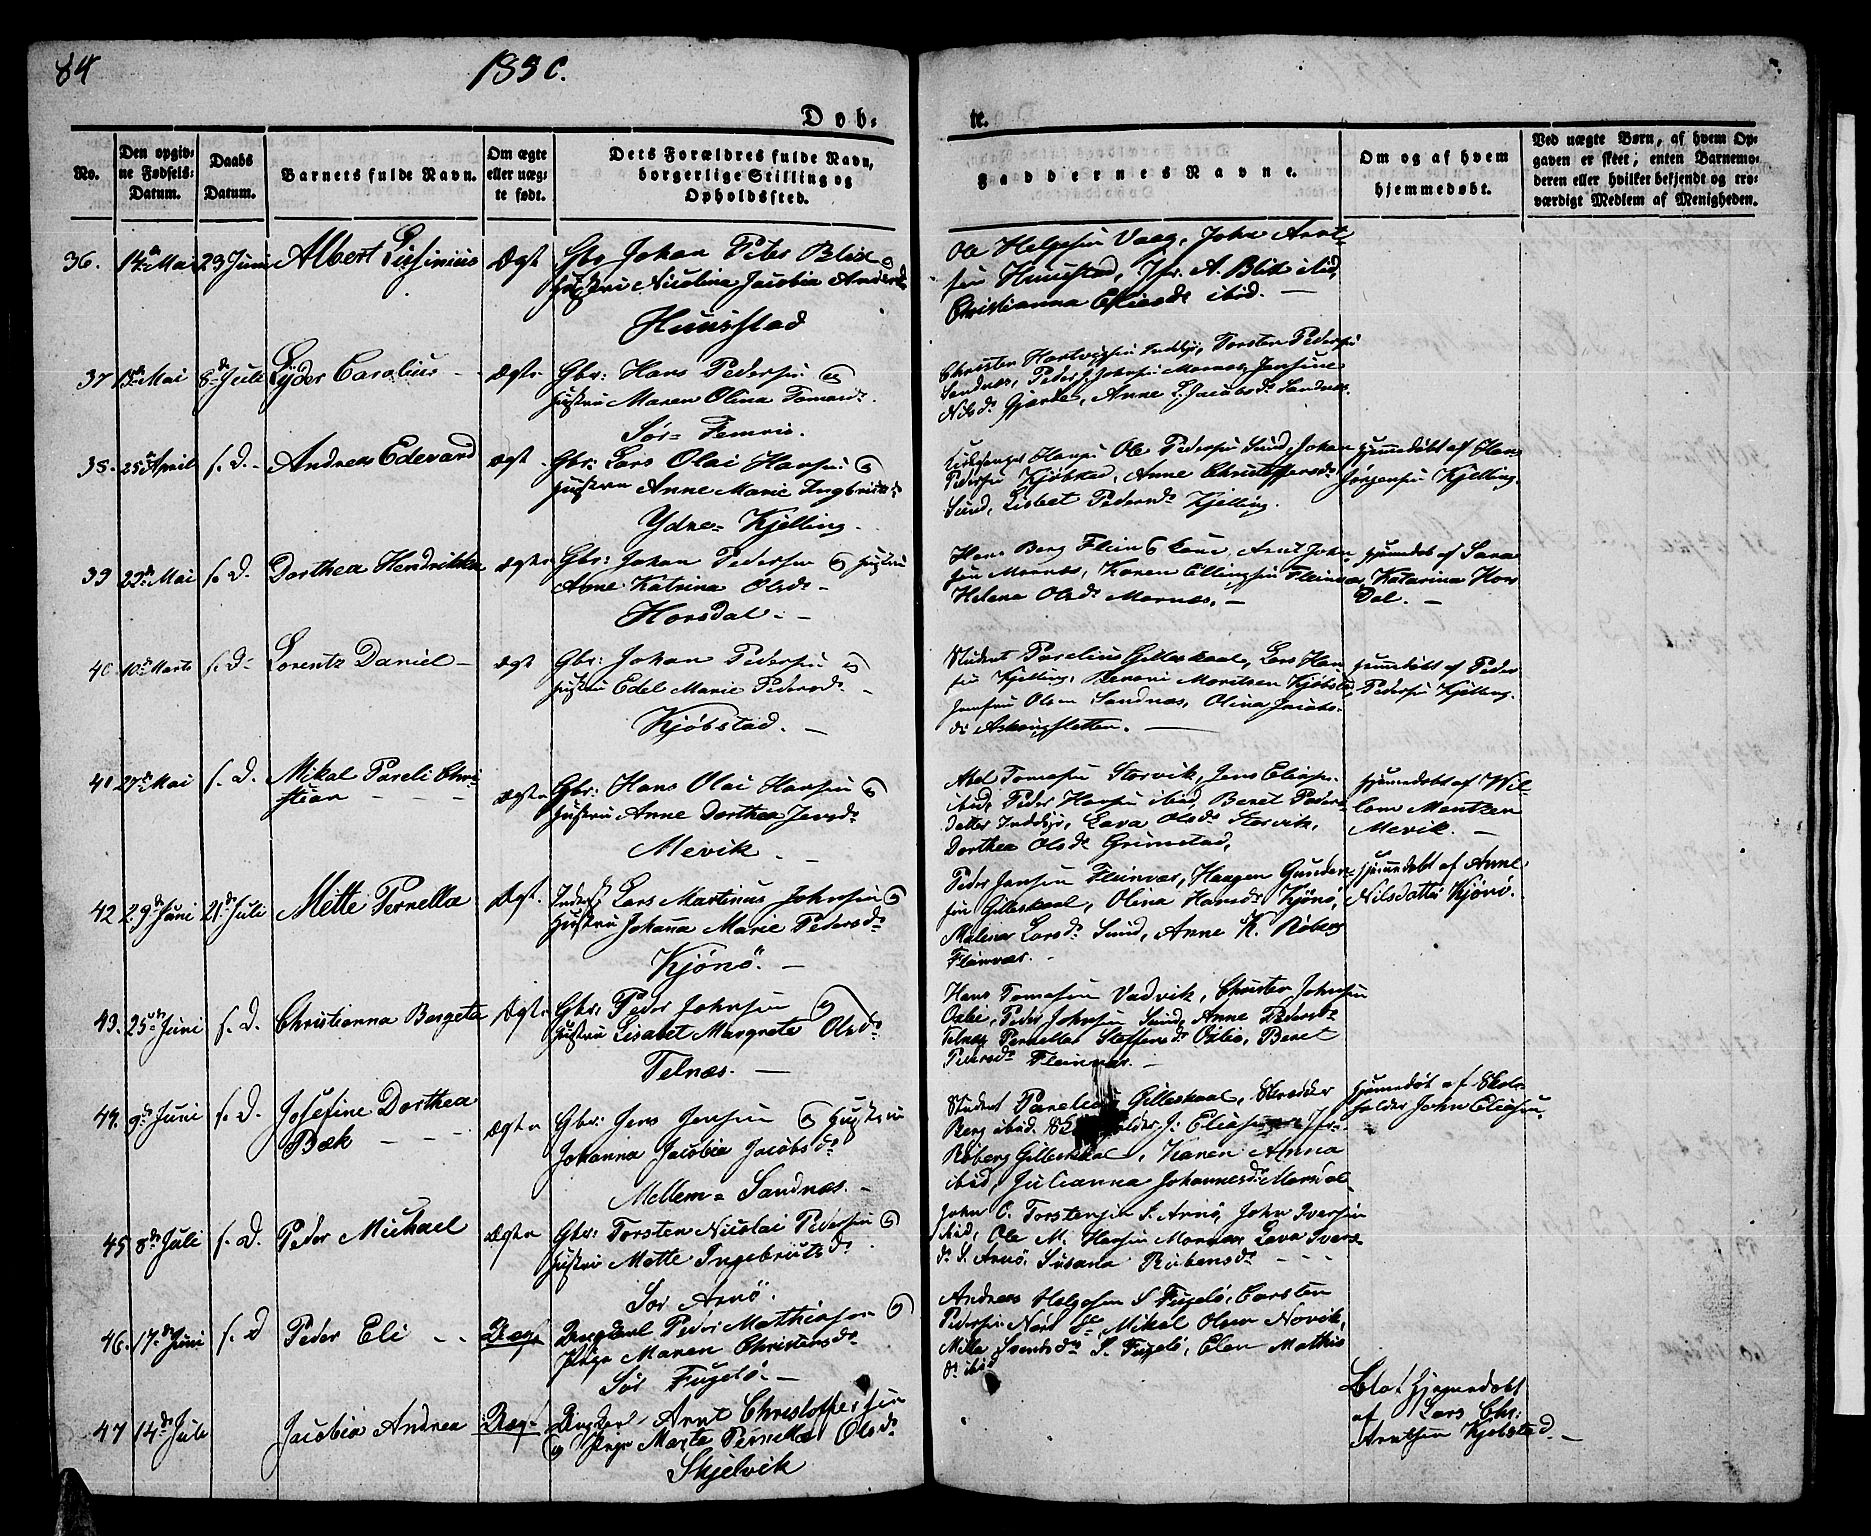 84
1830.
Døb-
te.
No.
Den opgiv-
ne Fødsels-
Datum.
Daabs
Datum.
Barnets fulde Navn.
Om ægte
eller uæg-
te født.
Dets Forældres fulde Navn,
borgerlige Stilling og
Opholdssted.
Faddernes Navne.
Om og af hvem
hjemmedøbt.
Ved uægte Børn, af hvem Op-
gaven er skeet; enten Barnemo-
deren eller hvilket bekjendt og tro-
værdigt Medlem af Menigheden.
36. 14de Mai 29 Juni Albert Ægt Gbr Johan Peter Blix og
Hustru Nicolina Jacobia Andersd
Huusstad
Ole Helgesen Vaag, John Arnt-
sen Huustad, Jfr. A. Blix ibid,
Christianna Eliasd. ibid. —
37 Mai 8de Juli Lyder Carolius - Ægte Gbr: Hans Pedersen og
Hustru Maren Olina Tomasd.
Sør-
Christen Hartvigsen Inddyr, Torsten Pedersen
Sandnæs, Peder Johnsen Mornæs, Jensine
Nilsd. Gjærde, Anne L. Jacobsd. Sandnæs.
38. 25de April s. D. - Andreas Edevard Ægt. Gbr: Lars Olai Hansen og
Hustru Anne Marie Ingbrigtsd.
Ydre- Kjelling. -
Hansen Ole Pedersen Sund, Johan
Pedersen Kjøbstad, Anne Christophersd.
Sund, Lisbet Pedersd. Kjelling.
Hjemmedøbt af Hans
Jørgensen Kjelling.
39 23de Mai s. D. Dorthea Hendrikka Ægte Gbr: Johan Pedersen og Hustru
Anne Katrina Olsd. -
Horsdal. -
Hans Berg Fleinvær, Arnt John-
sen Mornæs, Karen Ellingsen Fleinvær,
Helena Olsd. Mornæs. -
Hjemmedøbt af Sara
Katarina Hors
Dal. -
40 10de Marts s. D. Lorentz Daniel - Ægt Gbr: Johan Pedersen og
Hustru Edel Marie Pedersd. -
Kjøbstad. -
Student Parelius Gilleskaal, Lars Han-
sen Kjelling, Moritsen Kjøbstad,
Olsen Sandnæs, Olina Jacobs-
d. -
Hjemmedøbt af Peder
Pedersen Kjelling.
41 27de Mai s. D. Mikal Pareli Chri-
stian - - - Ægte Gbr: Hans Olai Hansen og
Hustru Anne Dorthea Jensd.
Mevik. -
Abel Tomasen Storvik, Jens Eliasen
ibid, Peder Hansen ibid, Beret Peders-
datter Inddyr, Lava Olsd. Storvik,
Dorthea Olsd. Grimstad,
Hjemmedøbt af Wil-
lom Mentzen
Mevik. -
42 29de Juni 21de Juli Mette Pernella Ægt. Lars Martinus Johnsen og
Hustru Johanna Marie Pedersd.
Kjönö. -
Peder Jensen Fleinvær, Haagen Gunder-
sen Gilleskaal, Olina Hansd. Kjönö,
Malena Larsd. Sund, Anne K. Røberg
Fleinvær. -
Hjemmedøbt af Anne
Nilsdatter Kjönö.
43. 25de Juni s. D. Christianna Bergeta Ægte Gbr: Peder Johnsen og
Hustru Lisabet Margrete Olsd.
Telnæs. -
Hans Tomasen Vadvik, Christen Johnsen
Peder Johnsen Sund, Anne Pedersd.
Telnæs, Pernella Steffensd. Beret
Pedersd. Fleinvær. -
44. 9de Juni s. D. Josefine Dorthea
Bæk - - - Ægte Gbr: Jens Jensen og Hustru
Johanna Jacobia Jacobsd.
Mellem- Sandnæs. -
Student Parelius Gilleskaal,
Berg ibid. J: Eliasen Jfr:
Røberg Gilleskaal, Karen Anna
ibid, Julianna Johannesd.
Hjemmedøbt af Skole-
holder John Eliasen.
45 8de Juli s. D. Peder Michael Ægte Gbr: Torsten Nicolai Pedersen og
Hustru Mette Ingebrigtsd.
Sör Arnö.
John O. Torstensen S. Arnö, John Iversen
ibid, Ole M. Hansen Mornæs, Lava Ivers-
d. S. Arnö, Susana Rubensd. - - -
46. 17de Juni s. D Peder Eli - - Uægt Ungkarl Peder Mathiasen og
Pige Maren Christensd.
Sör Fugelö. -
Andreas Helgesen S. Fugelö, Carsten
Pedersen Mikal Olsen Novik,
S. Fugelö, Elen Mathis
d. ibid
47 14de Juli Jacobia Andrea Uæg- Ungkarl Arnt Christophersen
og Pige Marta Pernella Olsd.
Skjelvik
Blot Hjemmedøbt
af Lars Chr:
Arntsen Kjøbstad. -